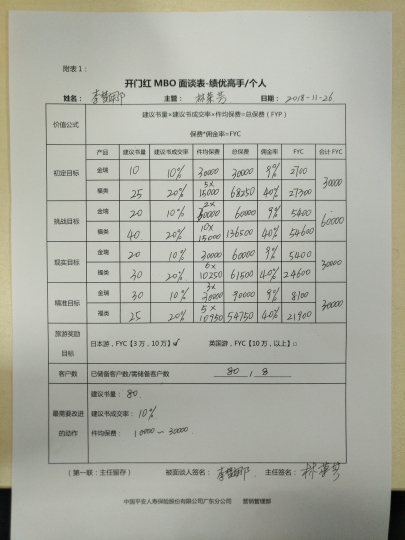 附表 1：
开门红 MBO 面谈表-绩优高手/个人
姓名： 主管： 林葉芳 日期： 2018-11-26
价值公式 建议书量×建议书成交率×件均保费=总保费（FYP）
保费*佣金率=FYC
产品 建议书量 建议书成交率 件均保费 总保费 佣金率 FYC 合计 FYC
初定目标 金瑞 10 10% 30000 30000 9% 2700 30000
福类 25 20% 5x 15000 68250 40% 27300
挑战目标 金瑞 20 10% 2x 30000 60000 9% 5400 60000
福类 40 20% 10x 15000 136500 40% 54600
现实目标 金瑞 20 10% 30000 60000 9% 5400 30000
福类 30 20% 6x 10250 61500 40% 24600
精准目标 金瑞 30 10% 3x 30000 90000 9% 8100 30000
福类 25 20% 5x 10950 54750 40% 21900
旅游奖励目标 日本游，FYC【3 万，10 万】✓ 英国游，FYC【10 万，以上】□
客户数 已储备客户数/需储备客户数 80 / 8
最需要改进的动作 建议书量： 80
建议书成交率： 10%
件均保费： 10000~30000
（第一联：主任留存） 被面谈人签名： 主任签名： 林葉芳
中国平安人寿保险股份有限公司广东分公司 营销管理部